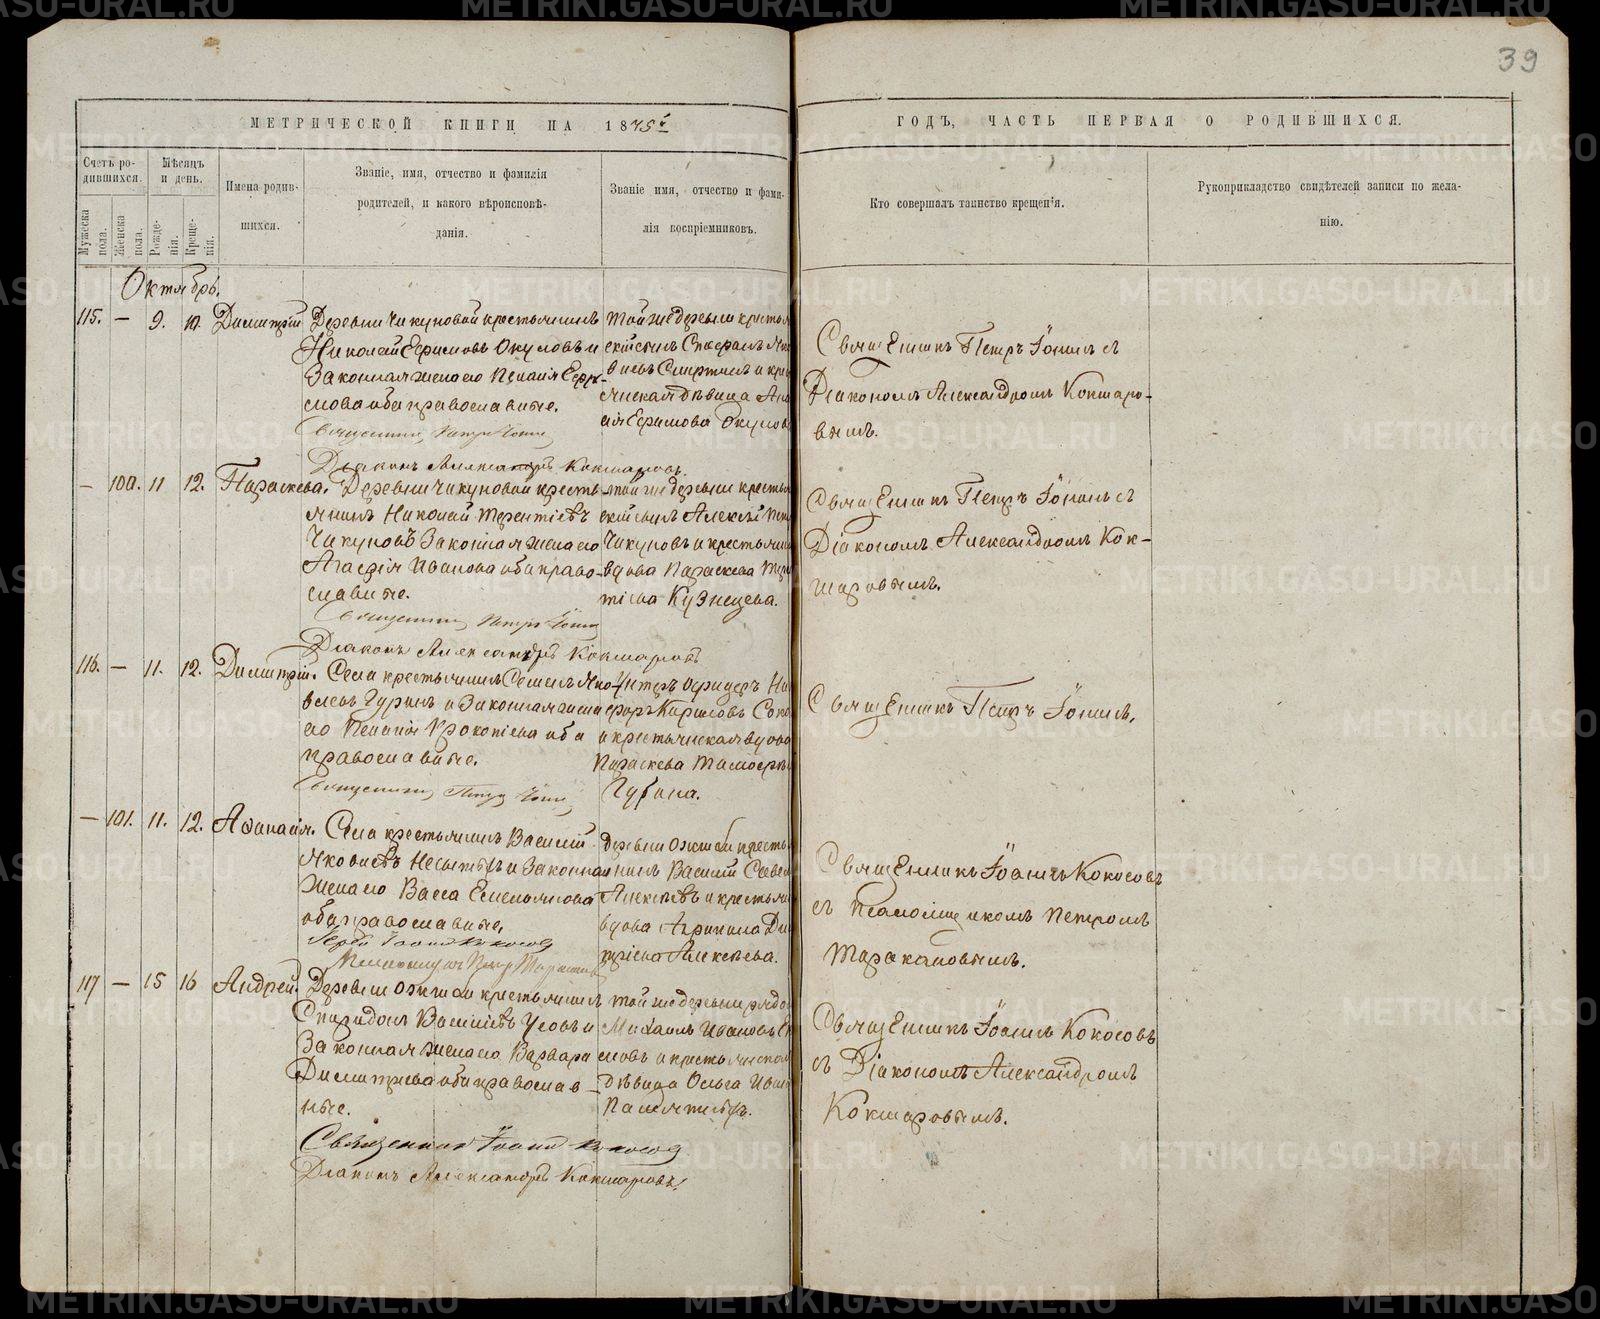 39
МЕТРИЧЕСКОЙ КНИГИ НА 1875й
ГОДЪ, ЧАСТЬ ПЕРВАЯ О РОДИВШИХСЯ.
Счетъ родившихся.
Мужеска пола.
Женска пола.
Мѣсяцъ и день.
Рожденія.
Крещенія.
Имена родившихся.
Званіе, имя, отчество и фамилія
родителей, и какого вѣроисповѣ-
данія.
Званіе имя, отчество и фами-
лія воспріемниковъ.
Кто совершалъ таинство крещенія.
Рукоприкладство свидѣтелей записи по жела-
нію.
Октябрь.
115. — 9. 10. Димитрій
Деревни Чикуновой крестьянинъ
Николай Ефимовъ Окуловъ и
Законная жена его Пелагія Ефи-
мова оба православные.
Священникъ Петръ Іонинъ
Діаконъ Александръ Кокшаровъ.
той же деревни крестья
вдѣвица
ія Ефимова Окулов
Священникъ Петръ Іонинъ съ
Діакономъ Александромъ Кокшаро-
вымъ.
— 100. 11 12. Параскева.
Деревни Чикуновой кресть-
янинъ Николай Терентіевъ
Чикуновъ Законная жена его
Агафія Иванова оба право-
славные.
Священникъ Петръ Іонинъ
Діаконъ Александръ Кокшаровъ
той же деревни крестья
Алексѣй
Чикуновъ и крестьянс
вдова Параскева Тере
тіева Кузнецова.
Священникъ Петръ Іонинъ съ
Діакономъ Александромъ Кок-
шаровымъ.
116. — 11. 12. Димитрій.
Села крестьянинъ Семенъ Яко
влевъ Гуринъ и Законная жена
его Пелагія Прокопіева оба
православные.
Священникъ Петръ Іонинъ
Унтеръ офицеръ Ни
форъ Кириловъ
и крестьянская вдова
Параскева Тимофеев
Губина.
Священникъ Петръ Іонинъ.
— 101. 11. 12. Афанасія.
Села крестьянинъ Василій
Яковлевъ и Законная
Жена его Васса Емельянова
оба православные.
Іерей Іоаннъ Кокосов
Псаломщикъ Петръ Таракановъ
деревни кресть
янинъ Василій Савел
Алексѣевъ и крестьян
вдова Агрипина Ди
тріева Алексѣева.
Священникъ Іоаннъ Кокосовъ
съ Псаломщикомъ Петромъ
Таракановымъ.
117 — 15 16 Андрей.
Деревни крестьянинъ
Спиридонъ Василіевъ Усовъ и
Законная жена его Варвара
Димитріева оба православ-
ные.
Священникъ Іоаннъ Кокосов
Діаконъ Александръ Кокшаровъ.
той же деревни рядо
Михаилъ Ивановъ Е
мовъ и крестьянская
дѣвица Ольга Иван
Священникъ Іоаннъ Кокосовъ
съ Діакономъ Александромъ
Кокшаровымъ.
METRIKI.GASO-URAL.RU